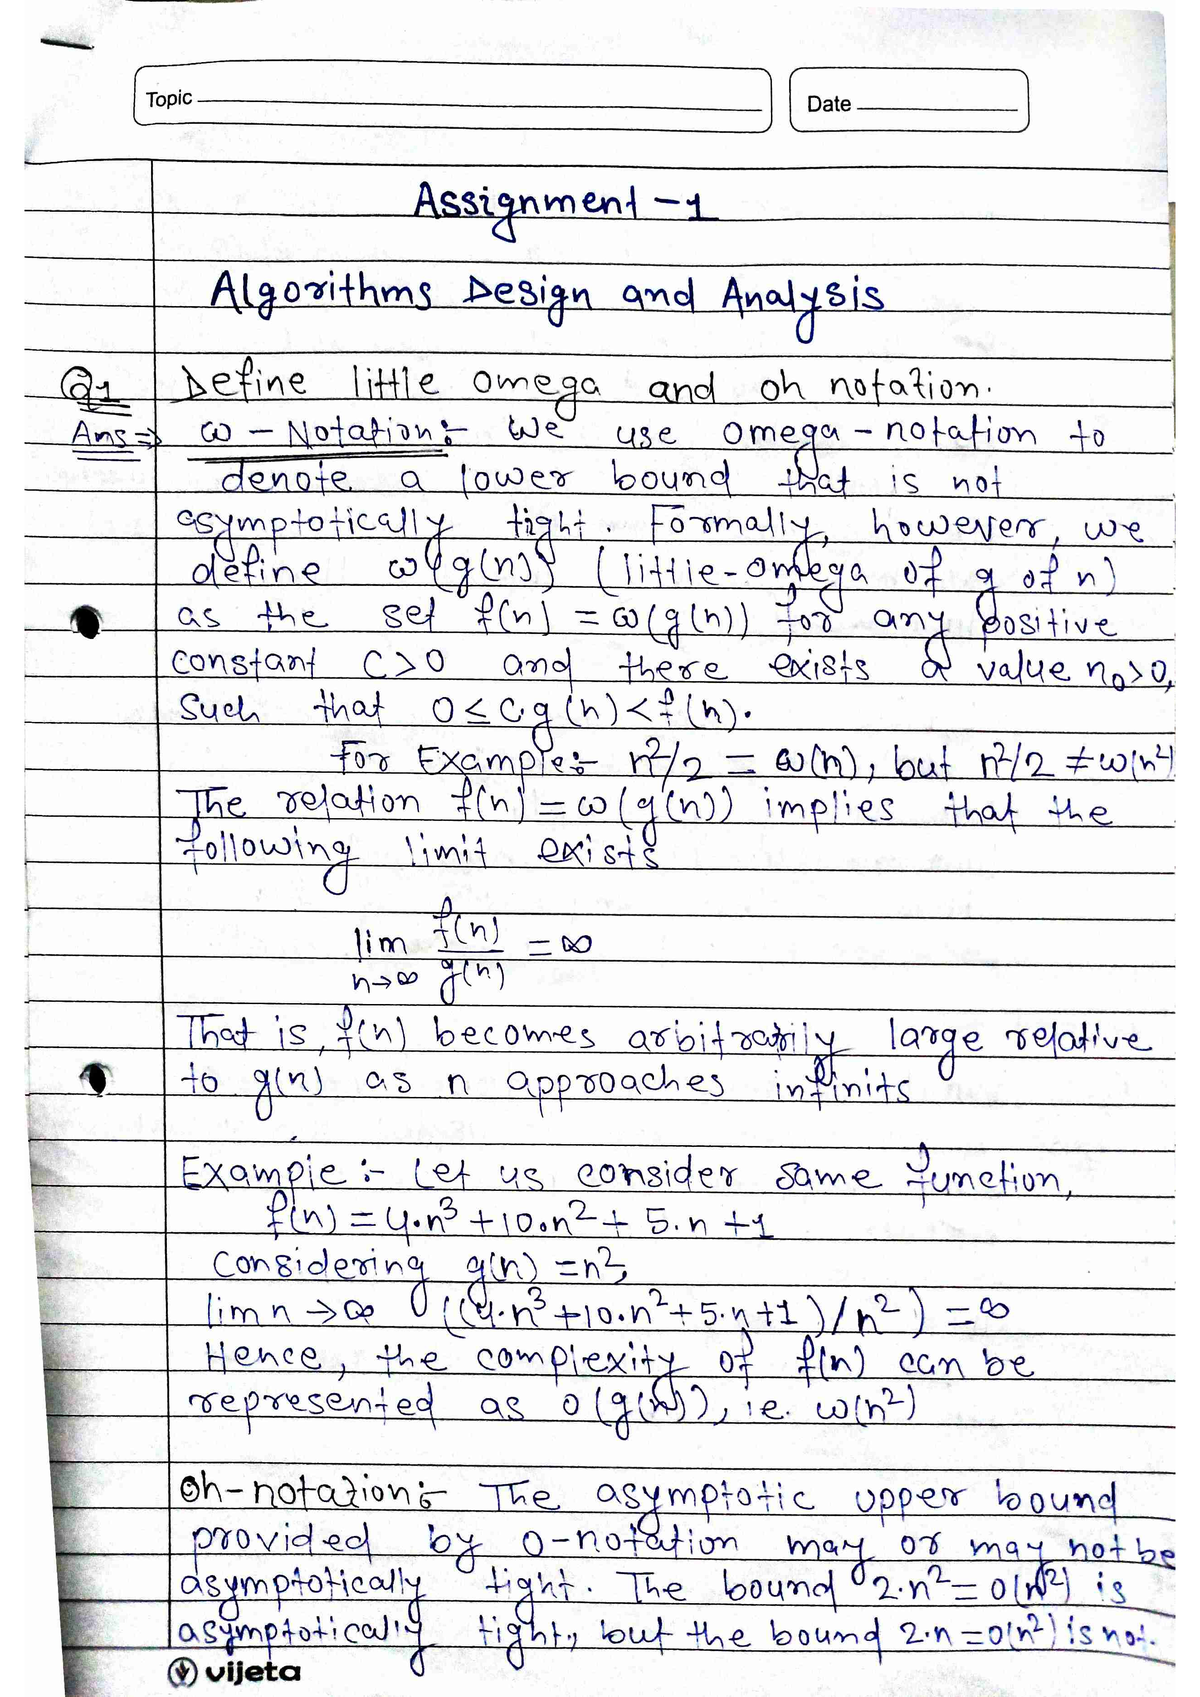 Topic
Date
Assignment - 1
Algorithms Design and Analysis
Q1 Define little omega and oh notation.
Ans => ω - Notation :- We use omega - notation to
denote a lower bound that is not
asymptotically tight. Formally, however, we
define ω{g(n)} (little-omega of g of n)
as the set f(n) = ω(g(n)) for any positive
constant C>0 and there exists a value n₀>0,
Such that 0 ≤ c.g(n) < f(n).
For Example :- n²/2 = ω(n), but n²/2 ≠ ω(n²)
The relation f(n) = ω(g(n)) implies that the
following limit exists
lim n→∞ f(n)/g(n) = ∞
That is, f(n) becomes arbitrarily large relative
to g(n) as n approaches infinits
Example :- Let us consider same function,
f(n) = 4.n³ + 10.n² + 5.n + 1
Considering g(n) = n²,
lim n → ∞ ((4.n³ + 10.n² + 5.n + 1) / n²) = ∞
Hence, the complexity of f(n) can be
represented as o(g(n)), ie. ω(n²)
Oh-notation :- The asymptotic upper bound
provided by o-notation may or may not be
asymptotically tight. The bound 2.n² = o(n²) is
asymptotically tight, but the bound 2.n = o(n²) is not.
vijeta